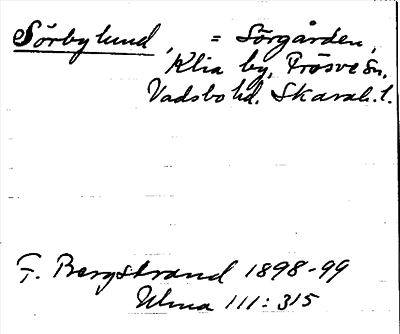 Sörbylund, = Sörgården,
Klia by, Frösve sn,
Vadsbo hd. Skarab. l.
F. Bergstrand 1898-99
Ulma 111:315